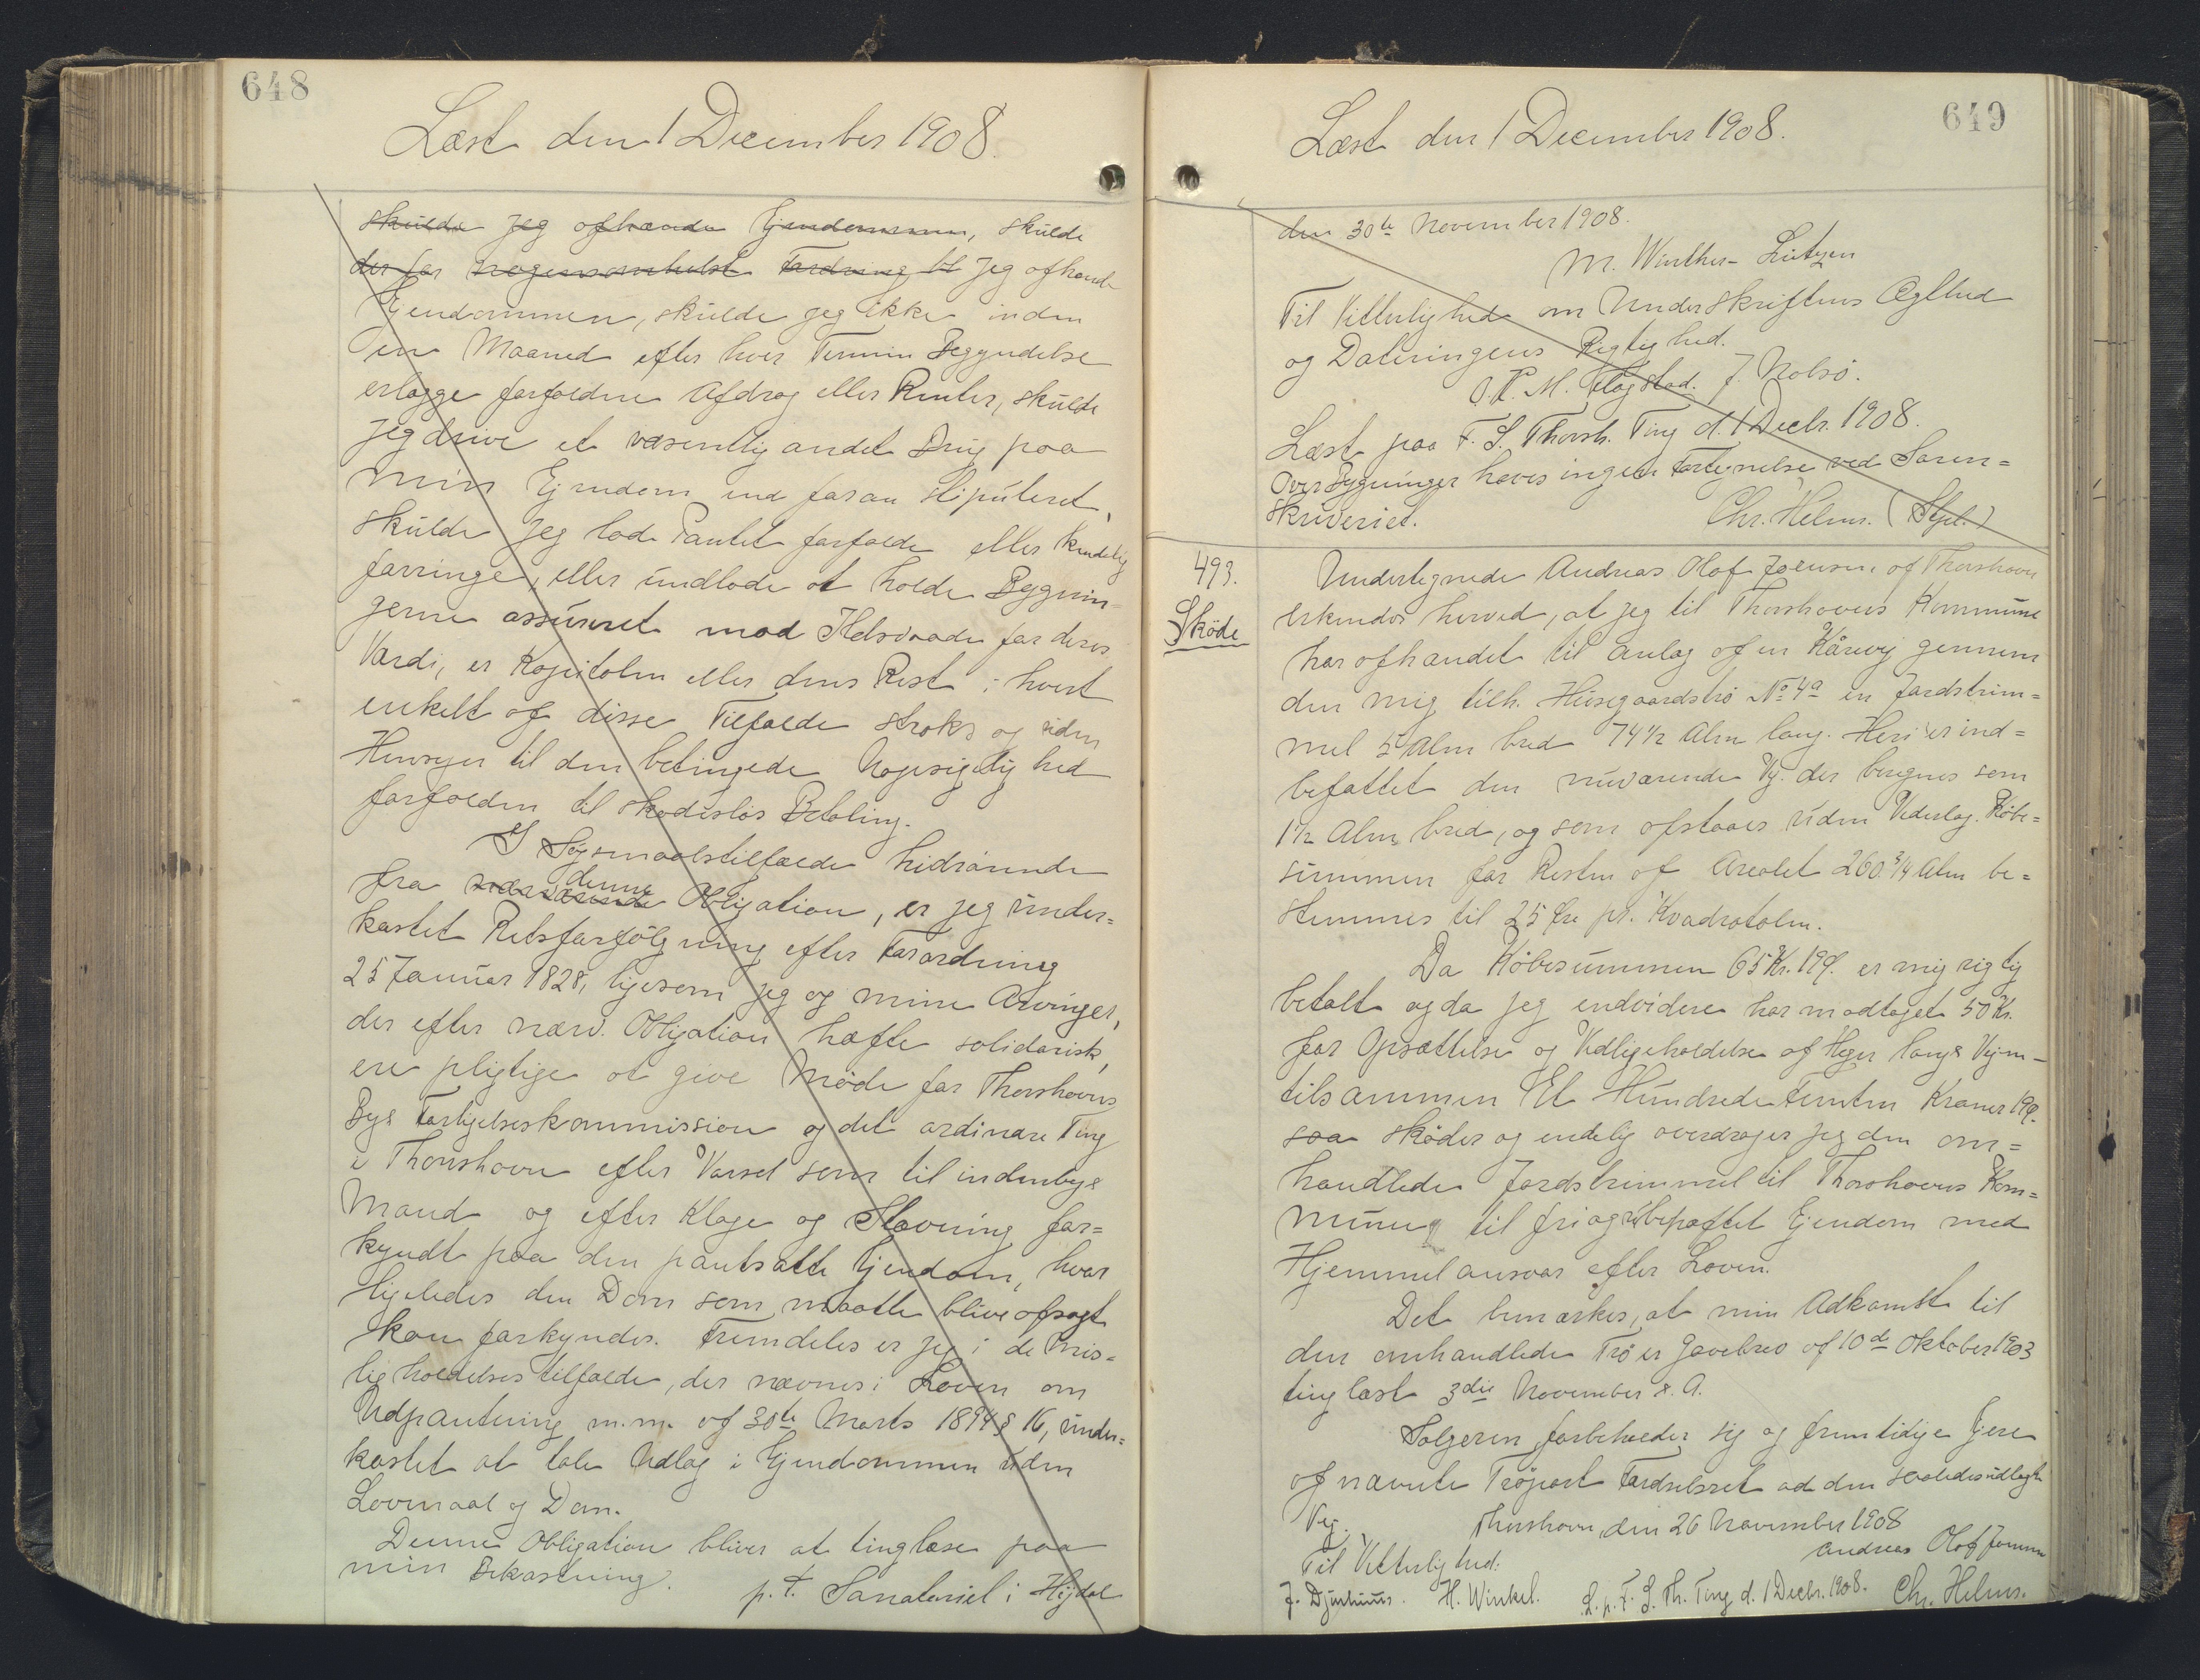 648
Læst den 1 December 1908.
skulde jeg afhænde Ejendommen, skulde
der for nogensomhelst Fordring til jeg afhænde
Ejendommen, skulde jeg ikke inden
en Maaned efter hver Termin Begyndelse
erlægge forfaldne Afdrag eller Renter, skulde
jeg drive et væsentlig andet Brug paa
min Ejendom end foran stipuleret,
skulde jeg lade Pantet forfalde eller kendelig
forringe, eller undlade at holde Bygnin-
gerne assureret mod Ildsvaade for deres
Værdi, er Kapitalen eller dens Rest i hvert
enkelt af disse Tilfælde straks og uden
Hensyn til den betingede Uopsigelighed
forfalden til skadesløs Betaling.
I Søgsmaalstilfælde hidrørende
fra nærværende denne Obligation, er jeg under=
kastet Retsforfølgning efter Forordning
25 Januar 1828, ligesom jeg og mine Arvinger,
der efter nærv. Obligation hæfte solidarisk,
ere pligtige at give Møde for Thorshavns
Bys Forligelseskommission og det ordinære Ting
i Thorshavn efter Varsel som til indenbys
Mand og efter Klage og Stævning for=
kyndt paa den pantsatte Ejendom, hvor
ligeledes den Dom som maatte blive afsagt
kan forkyndes. Fremdeles er jeg i de Mis=
ligholdelsestilfælde, der nævnes i Loven om
Udpantning m.m. af 30te Marts 1894 § 16, under=
kastet at taale Udlæg i Ejendommen uden
Lovmaal og Dom.
Denne Obligation bliver at tinglæse paa
min Bekostning.
p. t. Sanatoriet i Hojdal
649
Læst den 1 December 1908.
den 30te November 1908.
M. Winther-Lützen
Til Vitterlighed om Underskriftens Ægthed
og Dateringens Rigtighed.
O. P. M. Flagstad. J. Nolsø.
Læst paa F. S. Thorsh. Ting d. 1 Decbr. 1908.
Over Bygninger haves ingen Fortegnelse ved Soren=
skriveriet.
Chr. Helms. (Stpl.)
493.
Skøde
Undertegnede Andreas Olof Joensen af Thorshavn
erkender herved, at jeg til Thorshavns Kommune
har afhændet til Anlæg af en Kårevej gennem
den mig tilh. Húsagaardstrø No 4a en Jordstrim=
mel 5 Alen bred 74½ Alen lang. Heri er ind=
befattet den nuværende Vej der beregnes som
1½ Alen bred, og som afstaaes uden Vederlag. Købe=
summen for Resten af Arealet 260¾ Alen be=
stemmes til 25 Øre pr. Kvadratalen.
Da Købesummen 65 Kr. 19 Ø. er mig rigtig
betalt og da jeg endvidere har modtaget 50 Kr.
for Opsættelse og Vedligeholdelse af Hegn langs Vejen -
tilsammen Et Hundrede Femten Kroner 19 Ø.
saa skøder og endelig overdrager jeg den om=
handlede Jordstrimmel til Thorshavns Kom=
mune til fri og ubehæftet Ejendom med
Hjemmelansvar efter Loven.
Det bemærkes, at min Adkomst til
den omhandlede Trø er Gavebrev af 10de Oktober 1903
tinglæst 3die November s. A.
Sælgeren forbeholder sig og fremtidige Ejere
af nævnte Trøpart Færdselsret ad den saaledes udlagte
Vej.
Thorshavn, den 26 November 1908
Andreas Olof Joensen
Til Vitterlighed.
J. Djurhuus. H. Winkel. L. p. F. S. Th. Ting d. 1 Decbr. 1908. Chr. Helms.